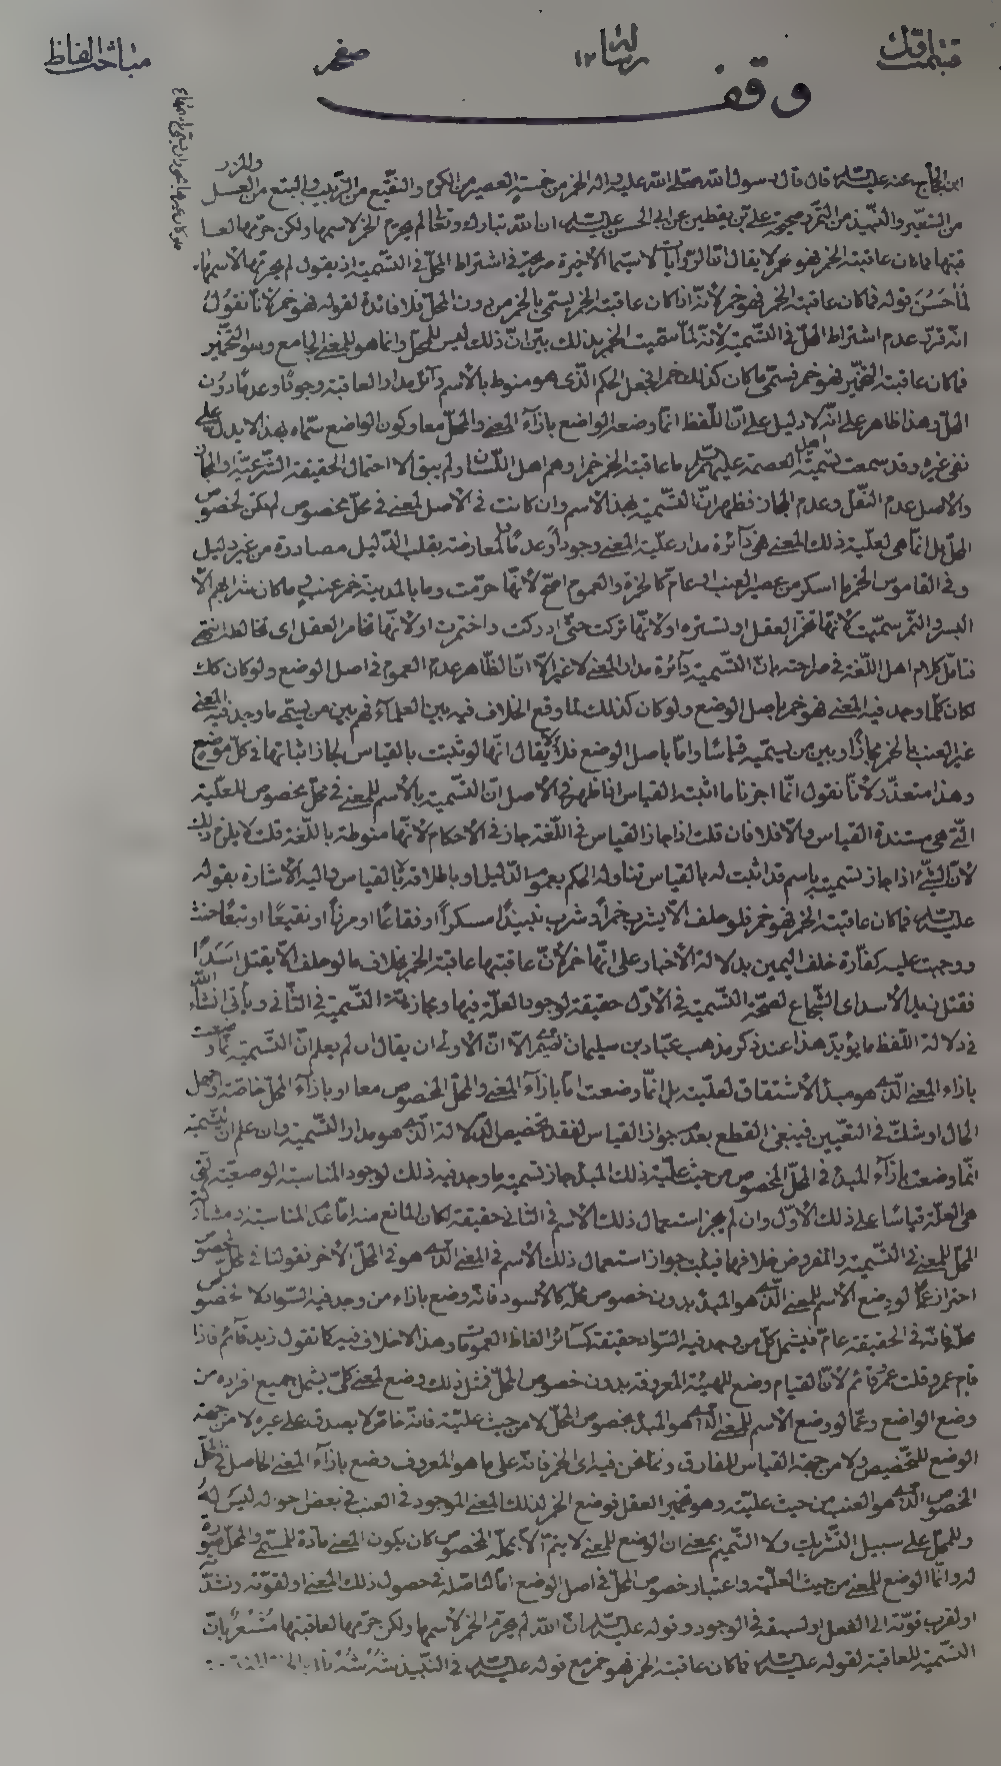 مباحث الفاظ
صفحه
رسالة ١٢
قسمت اول
وقف
والمزر
ابن الحجاج عنه عليه السلام قال قال رسول الله صلى الله عليه واله الخمر من خمسة العصير من الكرم والنقيع من الزبيب والبتع من العسل
من الشعير والنبيذ من التمر وصحيحة علي بن يقطين عن ابي الحسن عليه السلام ان الله تبارك وتعالى لم يحرم الخمر لاسمها ولكن حرمها لعا
قبتها فما كان عاقبته الخمر فهو خمر لا يقال ان الروايات لا سيما الأخيرة صريحة في اشتراط المحل في التسمية اذ يقول لم يحرمها لاسمها
قوله فما كان عاقبته الخمر فهو خمر لأنه اذا كان عاقبته الخمر يسمى بالخمر من دون المحل فلا فائدة لقوله فهو خمر لأنا نقول
انه قرر عدم اشتراط المحل في التسمية لأنه لما سميت الخمر بذلك بين ان ذلك ليس للمحل وانما هو للمعنى الجامع وهو التخمير
فما كان عاقبته التخمير فهو خمر فسمى ما كان كذلك خمرا فجعل الحكم الذي هو منوط بالاسم دائرا مدار العاقبة وجودا وعدما دون
المحل وهذا ظاهر على انه لا دليل على ان اللفظ انما وضعه الواضع بازاء المعنى والمحل معا وكون الواضع سماه بهذا لا يدل على
نفي غيره وقد سمعت تسمية اهل العصمة عليهم السلام ما عاقبته الخمر خمرا وهم اهل اللسان ولم يبق الا احتمال الحقيقة الشرعية او المجاز
والاصل عدم النقل وعدم المجاز فظهر ان التسمية بهذا الاسم وان كانت في الأصل لمعنى في محل مخصوص لم تكن لخصوص
المحل بل انما هي لعلية ذلك المعنى فهي دائرة مدار علية المعنى وجودا وعدما لمعارضة بقلب الدليل مصادرة من غير دليل
وفي القاموس الخمر ما اسكر من عصير العنب او عام كالخمرة والعموم اصح لأنها حرمت وما بالمدينة خمر عنب وما كان شرابهم الا
البسر والتمر سميت لأنها تخمر العقل وتستره او لانها تركت حتى ادركت واختمرت او لأنها تخامر العقل اي تخالطه انتهى
فتأمل كلام اهل اللغة في صراحته بان التسمية دائرة مدار المعنى لا غير الا ان الظاهر عدم العموم في اصل الوضع ولو كان كك
لكان كلما وجد فيه المعنى فهو خمر باصل الوضع ولو كان كذلك لما وقع الخلاف فيه بين العلماء فهم بين من يسمى ما وجد فيه المعنى
غير العنب بالخمر مجازا وبين من يسميه قياسا واما باصل الوضع فلا لا يقال انها لو ثبتت بالقياس لجاز اثباتها في كل موضع
وهذا متعذر لأنا نقول انما اجزنا ما اثبته القياس اذا ظهر في الأصل ان التسمية بالأسم للمعنى في محل مخصوص للعلية
التي هي مستندة القياس والا فلا فان قلت اذا جاز القياس في اللغة جاز في الأحكام لأنها منوطة باللغة قلت لا يلزم ذلك
لأن الشيء اذا جاز تسميته باسم قد اثبت له بالقياس تناوله الحكم بعموم الدليل او باطلاقه لا بالقياس واليه الأشارة بقوله
عليه السلام فما كان عاقبته الخمر فهو خمر فلو حلف الا يشرب خمرا وشرب نبيذا مسكرا او فقاعا او مزرا او نقيعا او تبعا حنث
ووجبت عليه كفارة خلف اليمين بدلالة الأخبار على انها خمر لأن عاقبتها عاقبة الخمر بخلاف ما لو حلف الا يقتل اسدا
فقتل زيدا الأسد اي الشجاع لصحة التسمية في الأول حقيقة لوجود العلة فيها ومجازية التسمية في الثاني ويأتي انشاء الله
في دلالة اللفظ ما يؤيد هذا عند ذكر مذهب عباد بن سليمان الصيمري الا ان الأولى ان يقال ان لم يعلم ان التسمية انما وضعت
بازاء المعنى الذي هو مبدأ الأشتقاق لعليته بل انما وضعت اما بازاء المعنى والمحل المخصوص معا او بازاء المحل خاصة او جهل
الحال او شك في التعيين فينبغي القطع بعدم جواز القياس لفقد تخصيص الدلالة الذي هو مدار التسمية وان علم ان التسمية
انما وضعت بازاء المبدء في المحل المخصوص من حيث علية ذلك المبدء جاز تسمية ما وجد فيه ذلك لوجود المناسبة الوضعية التي
هي العلة قياسا على ذلك الأول وان لم يجز استعمال ذلك الاسم في الثاني حقيقة لكان المانع منه اما عدم المناسبة او مشاركة
المحل للمعنى في التسمية والمفروض خلافهما فيثبت جواز استعمال ذلك الأسم في المعنى الذي هو في المحل الأخر فقولنا في محل مخصوص
احترازا عما لو وضع الأسم للمعنى الذي هو المبدء بدون خصوص محله كالأسود فانه وضع بازاء من وجد فيه السواد لا لخصوص
محل فانه في الحقيقة عام فيشمل كل من وجد فيه السواد حقيقة كسائر الفاظ العمومات وهذا لا خلاف فيه كما تقول زيد قائم فاذا
قام عمرو قلت عمرو قائم لأن القيام وضع للهيئة المعروفة بدون خصوص المحل فمثل ذلك وضع لمعنى كلي يشمل جميع افراده من
وضع الواضع وعما لو وضع الأسم للمعنى الذي هو المبدء بخصوص المحل لا من حيث علية فانه خاص لا يصدق على غيره لا من جهة
الوضع للتخصيص ولا من جهة القياس للفارق وما نحن فيه اي الخمر فانه على ما هو المعروف وضع بازاء المعنى الحاصل في المحل
المخصوص الذي هو العنب من حيث علية وهو تخمير العقل فوضع الخمر لذلك المعنى الموجود في العنب في بعض احواله ليس له
وللمحل على سبيل التشريك ولا التتميم بمعنى ان الوضع للمعنى لا يتم الا بمحله المخصوص كان يكون المعنى مادة للمسمى والمحل صورة
له وانما الوضع للمعنى من حيث العلية واعتبار خصوص المحل في اصل الوضع اما لتأصله في حصول ذلك المعنى او لقوته وشدته
او لقرب قوته الى الفعل او لسبقه في الوجود وقوله عليه السلام ان الله لم يحرم الخمر لأسمها ولكن حرمها لعاقبتها مشعر بان
التسمية للعاقبة لقوله عليه السلام فما كان عاقبته الخمر فهو خمر مع قوله عليه السلام في النبيذ